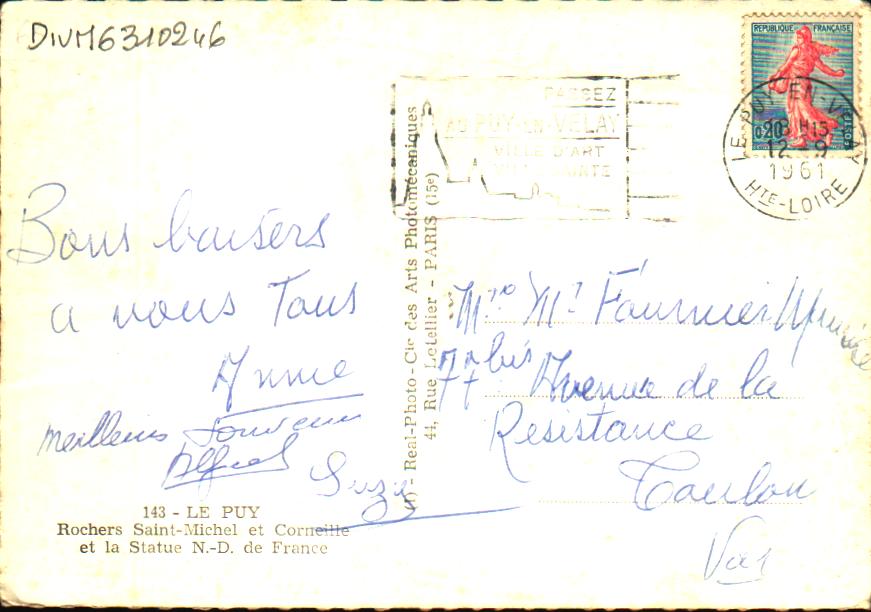 DIVM6310246
REPUBLIQUE FRANÇAISE
0,20
POSTES
PASSEZ
AU PUY-EN-VELAY
VILLE D'ART
LE PUY EN VELAY
12-9
1961
HTE-LOIRE
Bons baisers
a vous Tous
Anne
meilleurs Souvenirs
Alfred
Suzy
143 - LE PUY
Rochers Saint-Michel et Corneille
et la Statue N.-D. de France
Real-Photo - Cie des Arts Photomécaniques
44, Rue Letellier - PARIS (15e)
Mr Fournier
77 bis Avenue de la
Resistance
Toulon
Var